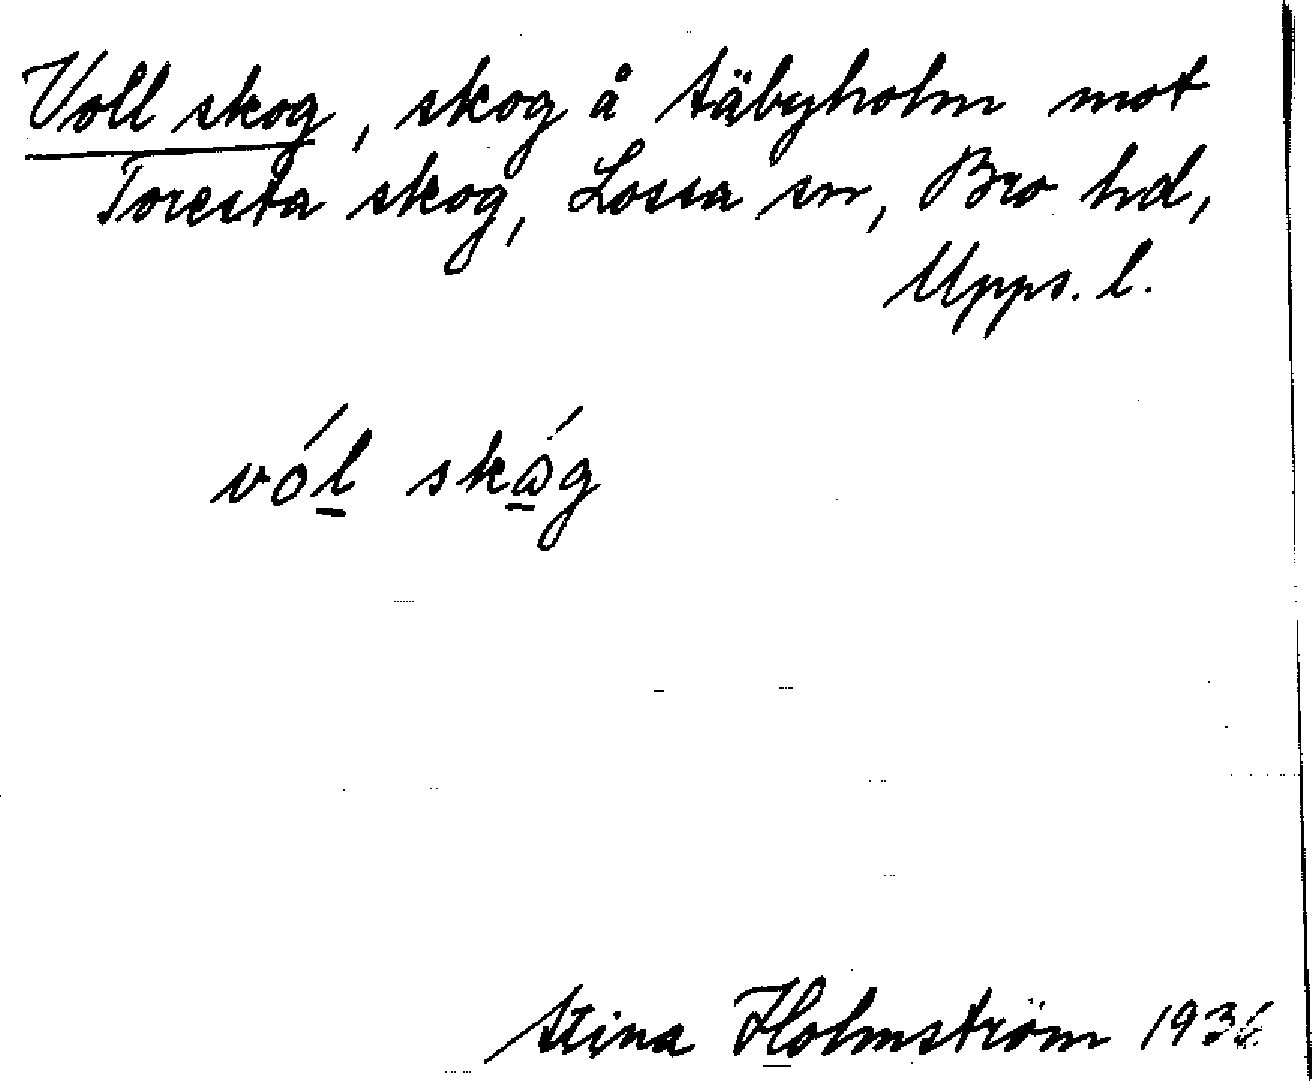 Voll skog, skog å Säbyholm mot
Toresta skog, Lossa sn, Bro hd,
Upps. l.
vól̲
Stina Holmström 1936